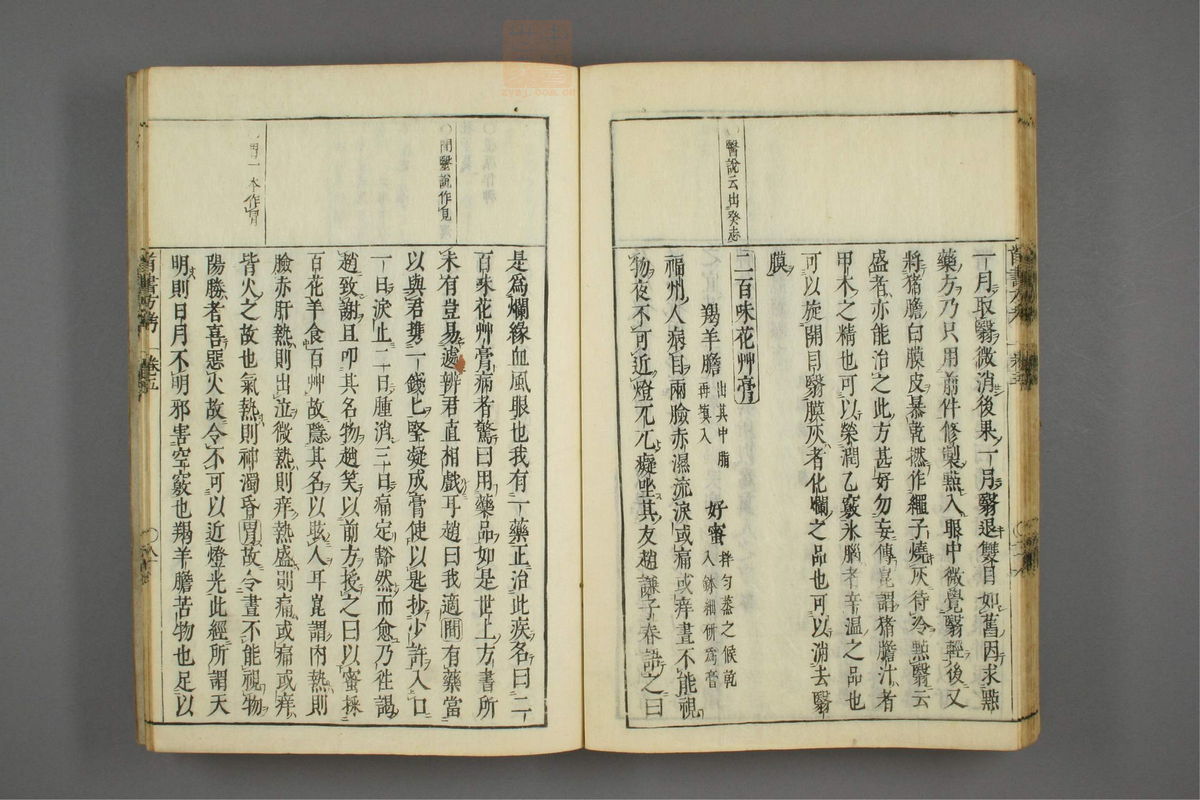 一月取翳微消後果一月翳退雙目如舊因求㸃
藥方乃只用前件修製㸃入眼中微覺翳輕後又
將猪膽白膜皮暴乾撚作繩子燒灰待冷㸃翳云
盛者亦能治之此方甚好勿妄傳崑謂猪膽汁者
甲木之精也可以榮潤乙竅氷腦者辛温之品也
可以旋開目翳膜灰者化爛之品也可以消去翳
膜
二百味花艸膏
羯羊膽 出其中脂再塡入 好蜜 拌匀蒸之候乾入鉢細研爲膏
福州人病目兩臉赤濕流淚或痛或痒晝不能視
物夜不可近燈兀兀癡坐其友趙謙子春語之曰
〇醫說云出癸志
是爲爛緣血風眼也我有一藥正治此疾名曰二
百味花艸膏病者驚曰用藥品如是世上方書所
未有豈易遽辨君直相戲耳趙曰我適間有藥當
以與君携一錢匕堅凝成膏使以匙抄少許入口
一日淚止二日腫消三日痛定豁然而愈乃徃謁
趙致謝且叩其名物趙笑以前方授之曰以蜜採
百花羊食百艸故隱其名以眩人耳崑謂内熱則
臉赤肝熱則出泣微熱則痒熱盛則痛或痛或痒
皆火之故也氣熱則神濁昏冐故令晝不能視物
陽勝者喜惡火故令不可以近燈光此經所謂天
明則日月不明邪害空竅也羯羊膽苦物也足以
〇間醫說作見
〇冐一本作冒
首書方考
卷五